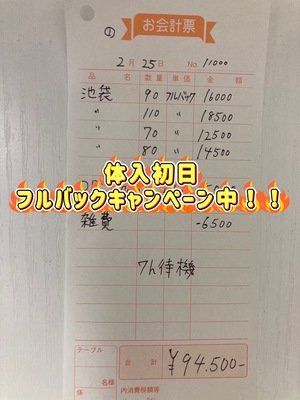 の
お会計票
2月25日 No. 11000
品名 数量 単価 金額
池袋 90 フルバック 16000
〃 110 〃 18500
〃 70 〃 12500
〃 80 〃 14500
体入初日
フルバックキャンペーン中！！
雑費 -6500
7h待機
テーブル
名様
合計 ¥94.500-
係
内消費税額等